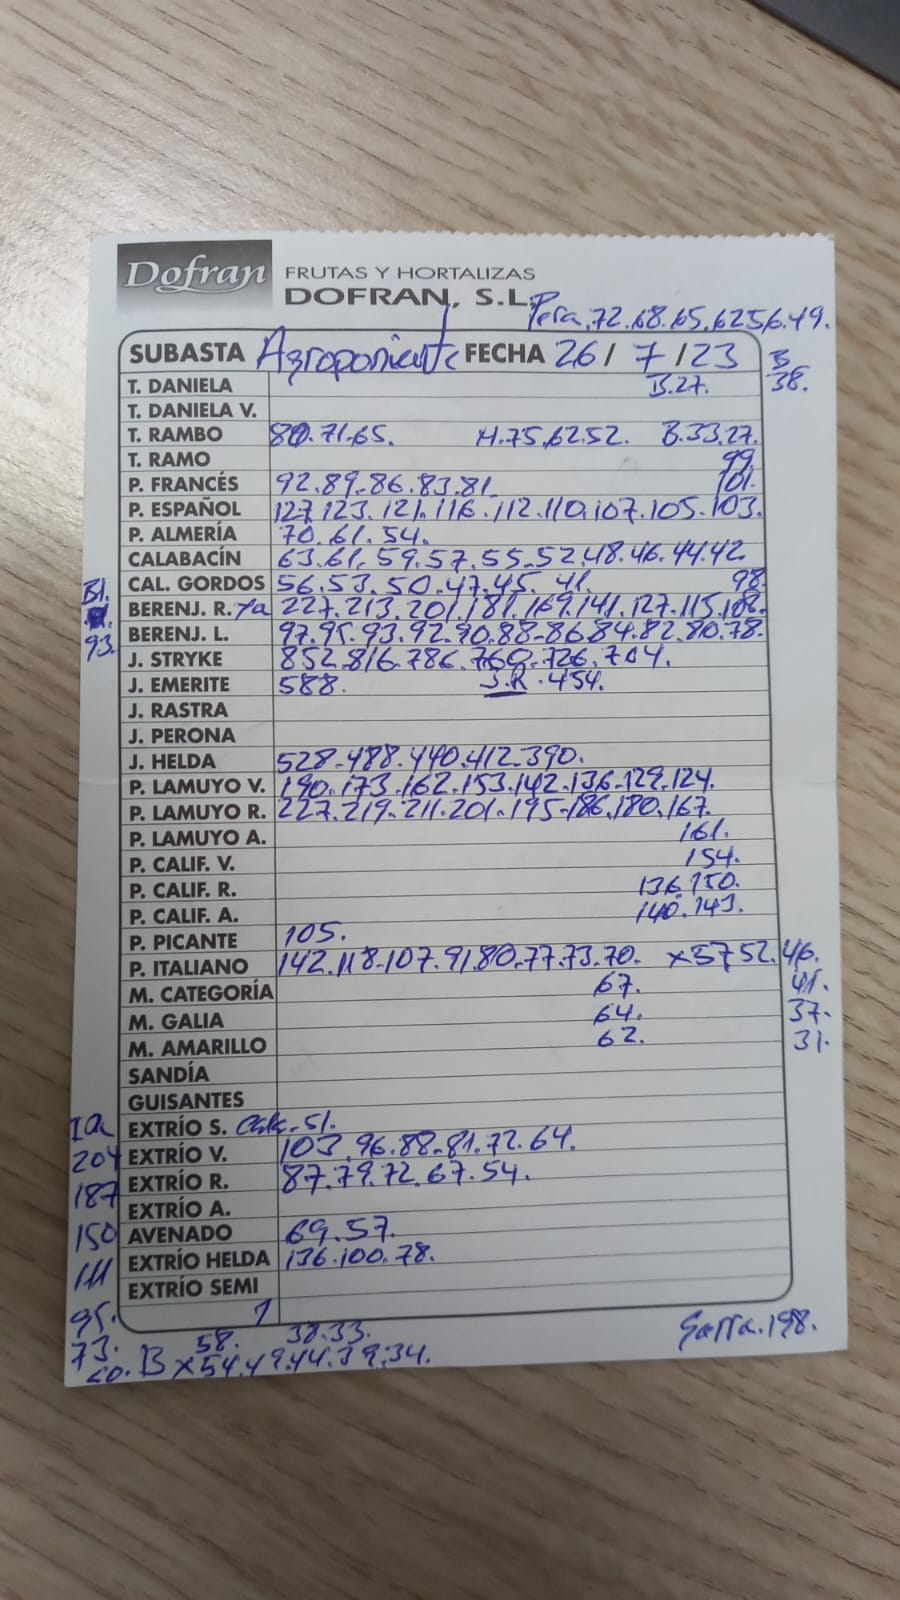 Dofran FRUTAS Y HORTALIZAS
DOFRAN, S.L.
Pera.72.68.65.62.56.49.
SUBASTA Agroponiente FECHA 26/7/23 B
T. DANIELA B.27. 38.
T. DANIELA V.
T. RAMBO 80.71.65. M.75.62.52. B.33.27.
T. RAMO 99.
P. FRANCÉS 92.89.86.83.81. 101.
P. ESPAÑOL 127.123.121.116.112.110.107.105.103.
P. ALMERÍA 70.61.54.
CALABACÍN 63.61.59.57.55.52.48.46.44.42.
CAL. GORDOS 56.53.50.47.45.41. 98.
Bl. BERENJ. R. 227.213.201.181.169.141.127.115.108.
93. BERENJ. L. 97.95.93.92.90.88.86.84.82.80.78.
J. STRYKE 852.816.786.760.726.704.
J. EMERITE 588. S.R.454.
J. RASTRA
J. PERONA
J. HELDA 528.488.440.412.390.
P. LAMUYO V. 190.173.162.153.142.136.129.124.
P. LAMUYO R. 227.219.211.201.195.186.180.167.
P. LAMUYO A. 161.
P. CALIF. V. 154.
P. CALIF. R. 136.150.
P. CALIF. A. 140.143.
P. PICANTE 105.
P. ITALIANO 142.118.107.91.80.77.73.70. x57.52.46.
M. CATEGORÍA 67. 41.
M. GALIA 64. 37.
M. AMARILLO 62. 31.
SANDÍA
GUISANTES
EXTRÍO S. 51.
204 EXTRÍO V. 103.96.88.81.72.64.
187 EXTRÍO R. 87.79.72.67.54.
EXTRÍO A.
150 AVENADO 69.57.
111 EXTRÍO HELDA 136.100.78.
EXTRÍO SEMI
95.
73. 58. 38.33. Garra.198.
60. B x54.49.44.39.34.